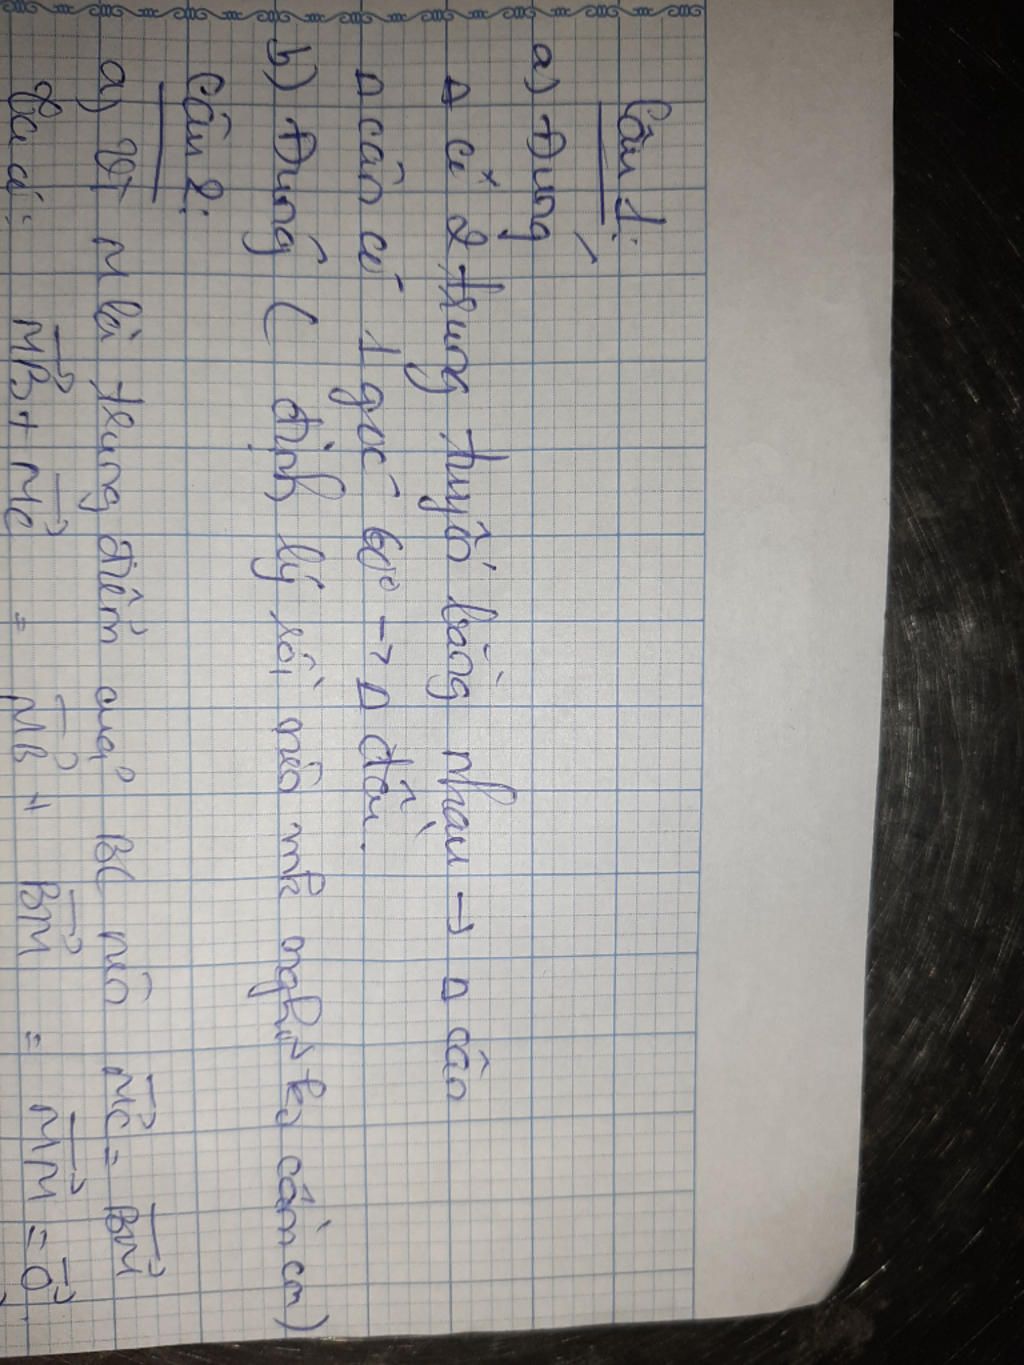 Câu 1:
a) Đúng
Δ có 2 trung tuyến bằng nhau → Δ cân
Δ cân có 1 góc 60° → Δ đều.
b) Đúng ( định lý rồi nên mk nghĩ ko cần cm)
Câu 2:
a) Vì M là trung điểm của BC nên MC→ = BM→
Ta có: MB→ + MC→ = MB→ + BM→ = MM→ = 0→